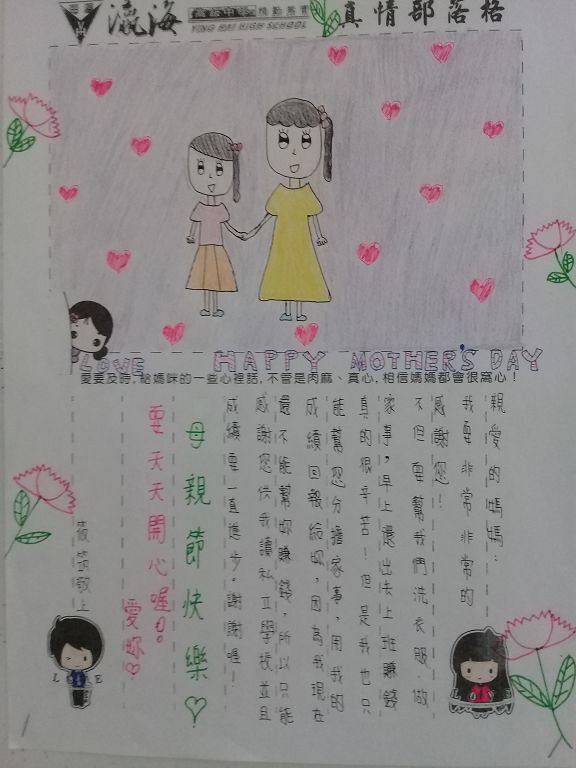 瀛海
YING HAI HIGH SCHOOL
真情部落格
LOVE HAPPY MOTHER'S DAY
愛要及時,給媽咪的一些心裡話,不管是肉麻、真心,相信媽媽都會很窩心!
親愛的媽媽:
我要非常非常的
感謝您!
不但要幫我們洗衣服、做
家事,早上還出去上班賺錢
真的很辛苦!但是我也只
能幫您分擔家事,用我的
成績回報給妳,因為我現在
還不能幫妳賺錢,所以只能
感謝您供我讀私立學校並且
成績要一直進步。謝謝喔!
母親節快樂♡
要天天開心喔!
愛妳♡
敬上
LOVE